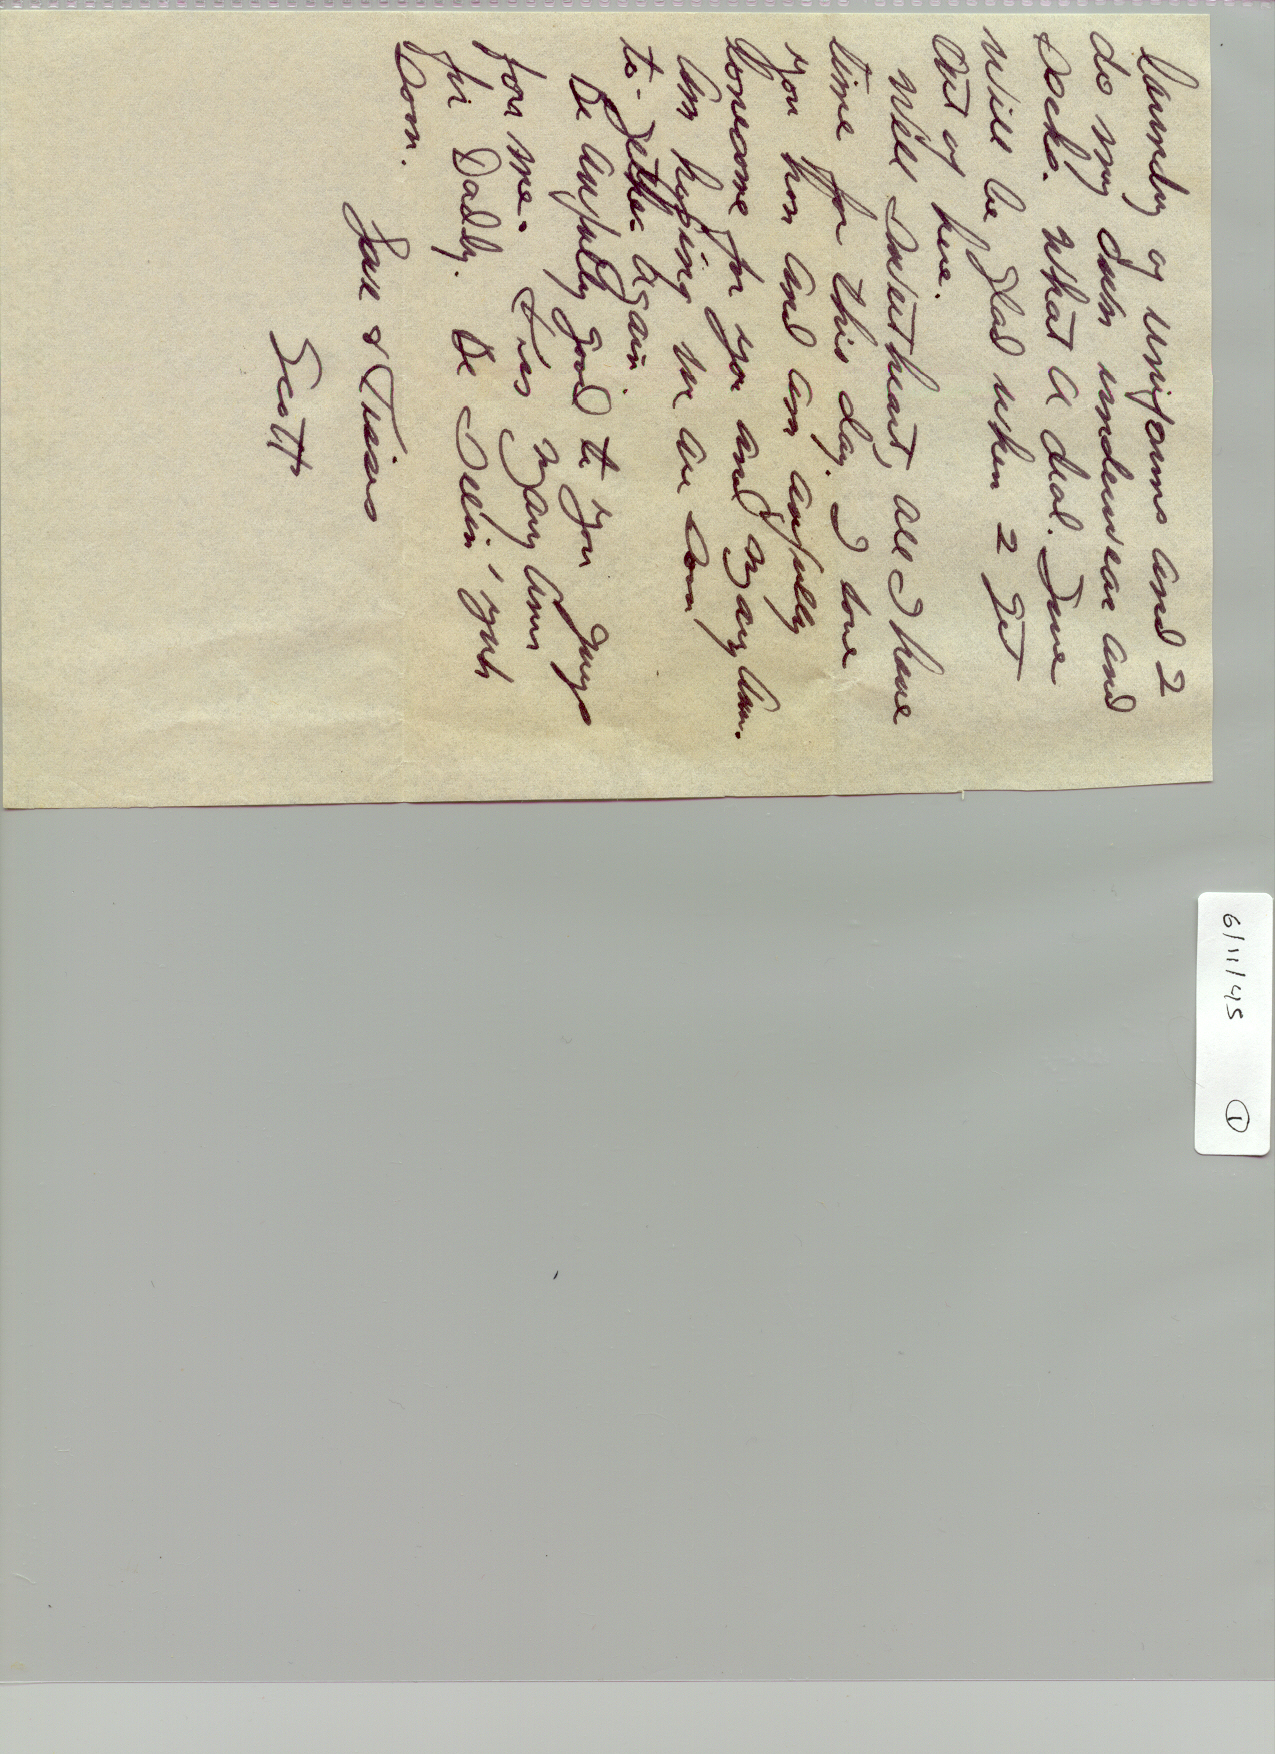 laundry of uniforms and I
do my own underwear and
socks. What a deal. Sure
will be glad when I get
out of here.
Well Sweetheart, all I have
time for this day. I love
you hon and am awfully
lonesome for you and Mary Ann.
Am hoping we are soon
to-gether again
Be awfully good to you guys
for me. Kiss Mary Ann
for Daddy. Be seein' yuh
soon.
Love & Kisses
Scott
6/11/45 ①